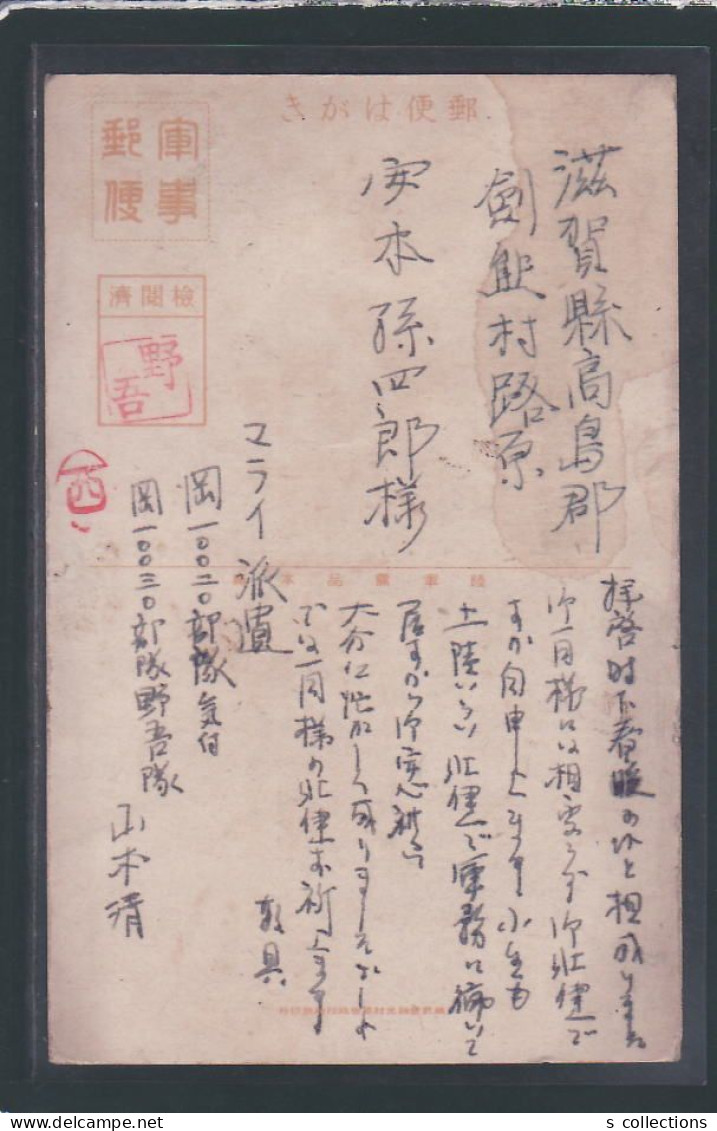 郵便はがき
軍事
郵便
検閲済
野
吾
滋賀縣高島郡
劍熊村路原
安本孫四郎様
マライ派遣
岡一〇〇二〇部隊気付
岡一〇〇三〇部隊野吾隊
山本清
四
拝啓時下春暖の候と相成りました
御一同様には相変らず御壮健で
すか自申上ます小生も
上陸いらい壮健で軍務に働いて
居すから御安心被下
大分忙がしく成りましたでしよ
では一同様の壮健お祈上ます
敬具
s collections